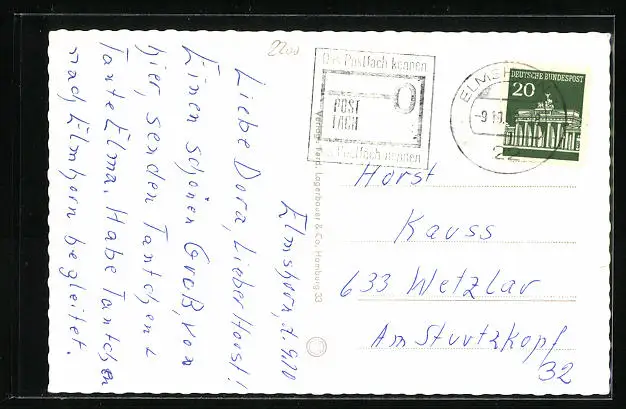 2200
Das Postfach kennen
POST
FACH
das Postfach nennen
ELMSHORN
-9.10.
22
DEUTSCHE BUNDESPOST
20
Elmshorn, d. 9.10
Liebe Dora, Lieber Horst!
Einen schönen Gruß, von
hier, senden Tantchen u
Tante Elma. Habe Tantchen
nach Elmhorn begleitet.
Verlag Ferd. Lagerbauer & Co., Hamburg 33
Horst
Kauss
633 Wetzlar
Am Sturtzkopf
32